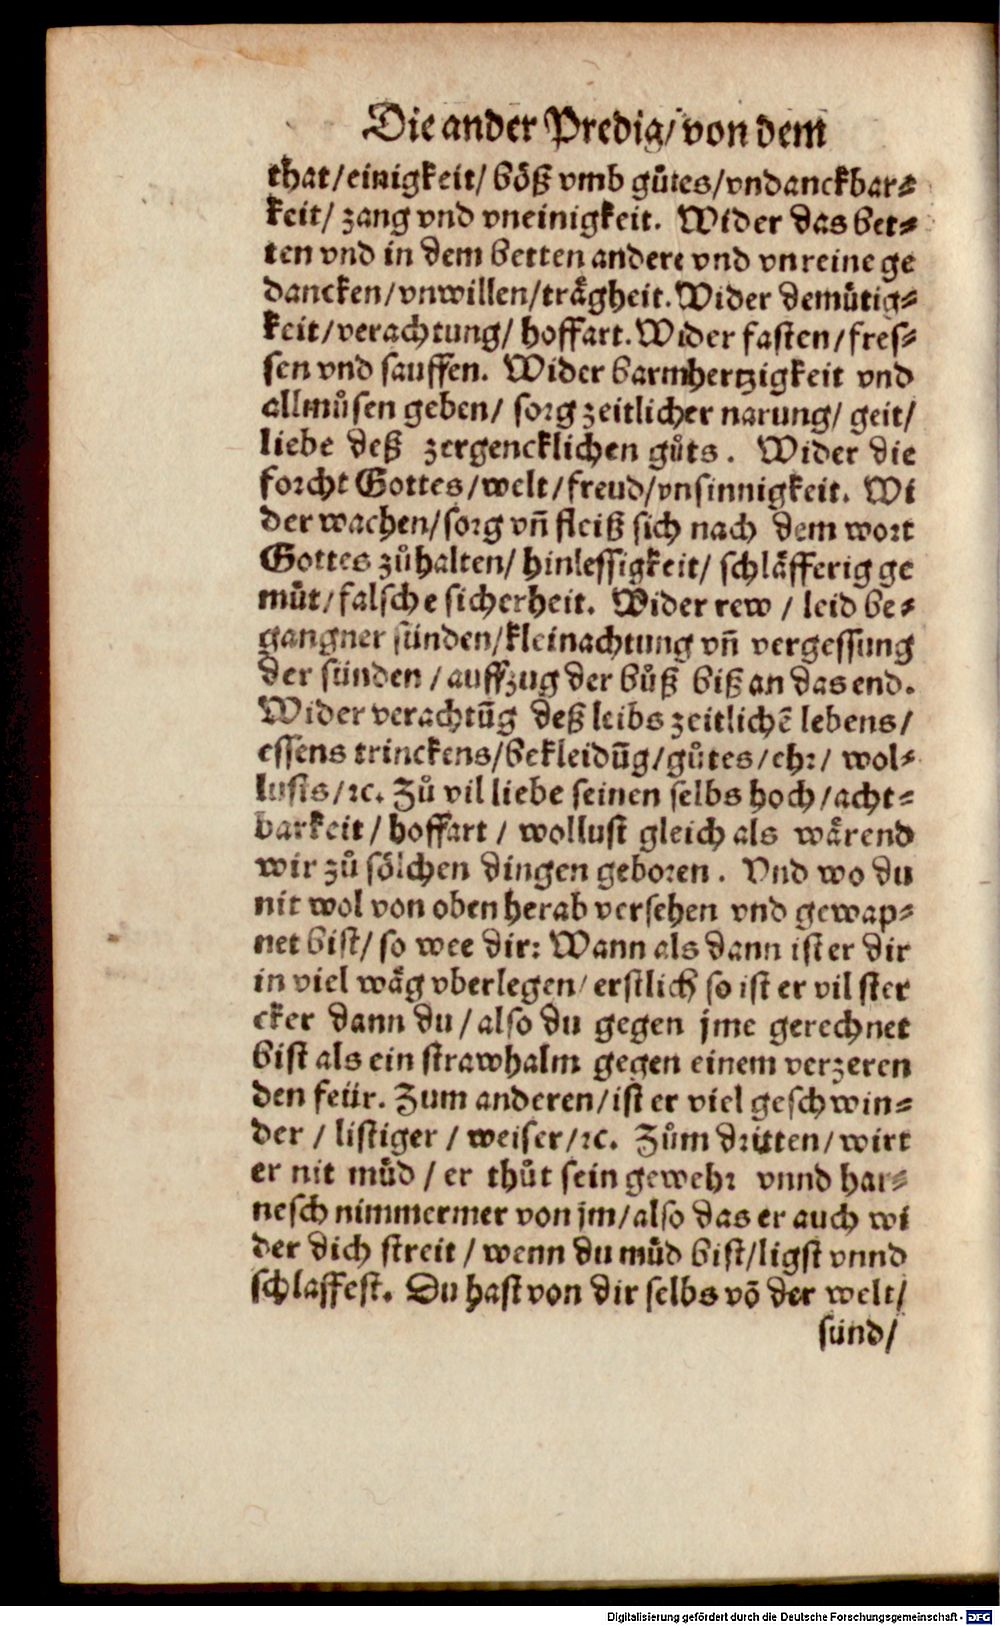 Die ander Predig/ von dem
that/ einigkeit/ böß vmb gůtes/ vndanckbar⸗
keit/ zang vnd vneinigkeit. Wider das bet⸗
ten vnd in dem betten andere vnd vnreine ge
dancken/ vnwillen/ trägheit. Wider demůtig⸗
keit/ verachtung/ hoffart. Wider fasten/ fres⸗
sen vnd sauffen. Wider barmhertzigkeit vnd
allmůsen geben/ sorg zeitlicher narung/ geit/
liebe deß zergencklichen gůts. Wider die
forcht Gottes/ welt/ freud/ vnsinnigkeit. Wi
der wachen/ sorg vñ fleiß sich nach dem wort
Gottes zůhalten/ hinlessigkeit/ schläfferig ge
můt/ falsche sicherheit. Wider rew / leid be⸗
gangner sünden/ kleinachtung vñ vergessung
der sünden / auffzug der bůß biß an das end.
Wider verachtũg deß leibs zeitlichẽ lebens/
essens trinckens/ bekleidũg/ gůtes/ ehr/ wol⸗
lusts/ ꝛc. Zů vil liebe seinen selbs hoch/ acht⸗
barkeit / hoffart / wollust gleich als wärend
wir zů sölchen dingen geboren. Vnd wo du
nit wol von oben herab versehen vnd gewap⸗
net bist/ so wee dir: Wann als dann ist er dir
in viel wäg vberlegen/ erstlich so ist er vil ster
cker dann du / also du gegen jme gerechnet
bist als ein strawhalm gegen einem verzeren
den feür. Zum anderen/ ist er viel geschwin⸗
der / listiger / weiser/ ꝛc. Zům dritten/ wirt
er nit můd / er thůt sein gewehr vnnd har⸗
nesch nimmermer von jm/ also das er auch wi
der dich streit / wenn du můd bist/ ligst vnnd
schlaffest. Du hast von dir selbs võ der welt/
sünd/
Digitalisierung gefördert durch die Deutsche Forschungsgemeinschaft - DFG